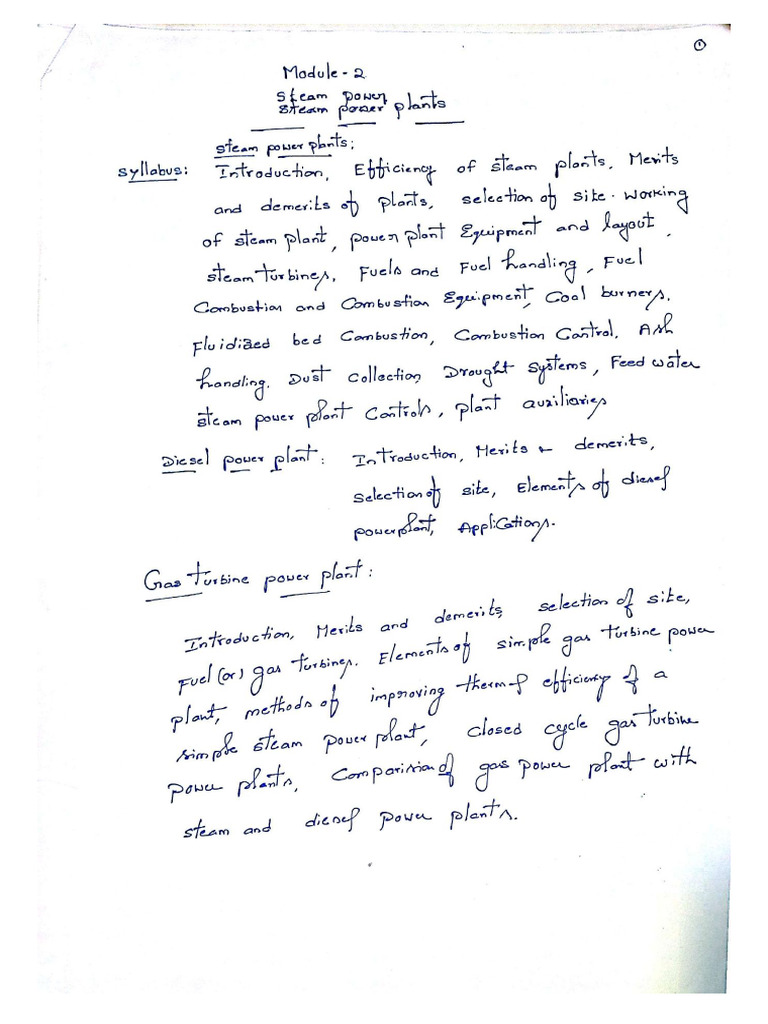 ①
Module - 2
Steam power
Steam power plants
Steam power plants:
Syllabus: Introduction, Efficiency of steam plants, Merits
and demerits of plants, selection of site. Working
of steam plant, power plant Equipment and layout,
steam turbines, Fuels and Fuel handling, Fuel
Combustion and Combustion Equipment, Coal burners,
Fluidized bed Combustion, Combustion Control, Ash
handling, Dust Collection, Drought Systems, Feed water
steam power plant Controls, plant auxiliaries
Diesel power plant: Introduction, Merits & demerits,
selection of site, Elements of diesel
powerplant, Applications.
Gas Turbine power plant:
Introduction, Merits and demerits, selection of site,
Fuel (or) gas turbines. Elements of simple gas turbine power
plant, methods of improving thermal efficiency of a
simple steam power plant, closed cycle gas turbine
power plants, Comparision of gas power plant with
steam and diesel power plants.